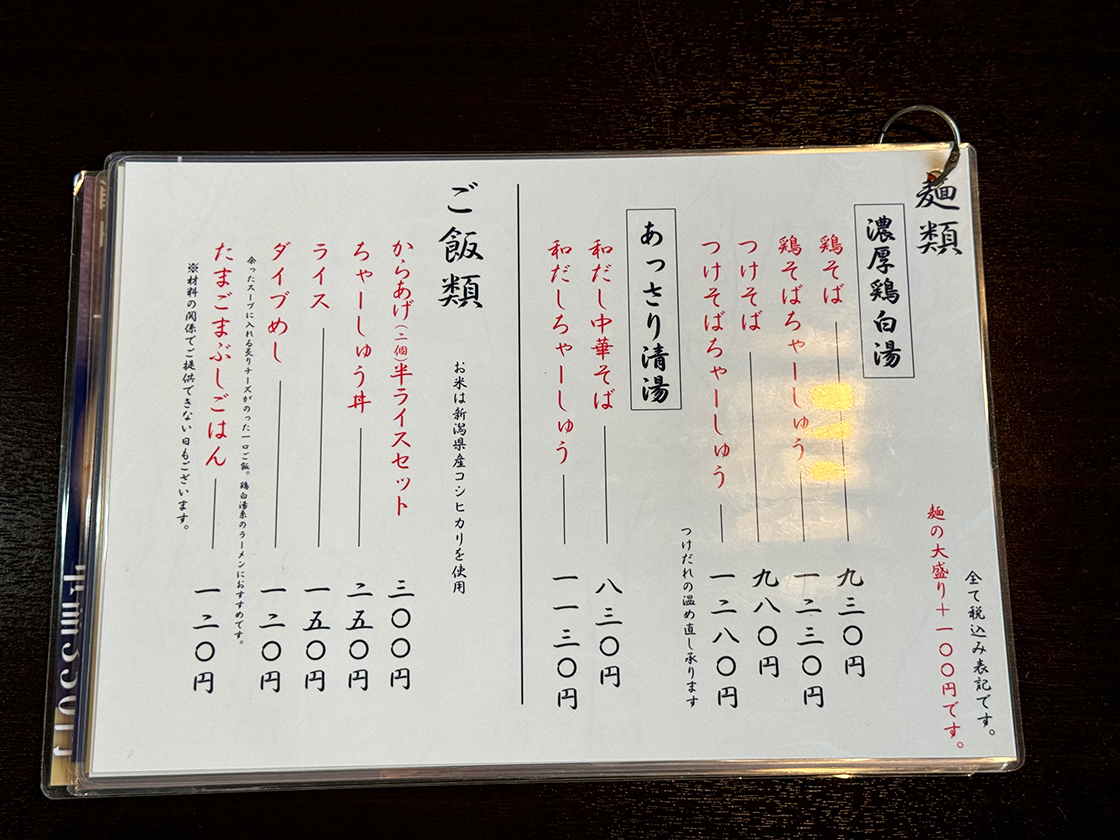 麺類
全て税込み表記です。
麺の大盛り＋一〇〇円です。
濃厚鶏白湯
鶏そば 九三〇円
鶏そばちゃーしゅう 一二三〇円
つけそば 九八〇円
つけそばちゃーしゅう 一二八〇円
つけだれの温め直し承ります
あっさり清湯
和だし中華そば 八三〇円
和だしちゃーしゅう 一一三〇円
ご飯類
お米は新潟県産コシヒカリを使用
からあげ（二個）半ライスセット 三〇〇円
ちゃーしゅう丼 二五〇円
ライス 一五〇円
ダイブめし 一二〇円
余ったスープに入れる炙りチーズがのった一口ご飯。鶏白湯系のラーメンにおすすめです。
たまごまぶしごはん 一二〇円
※材料の関係でご提供できない日もございます。